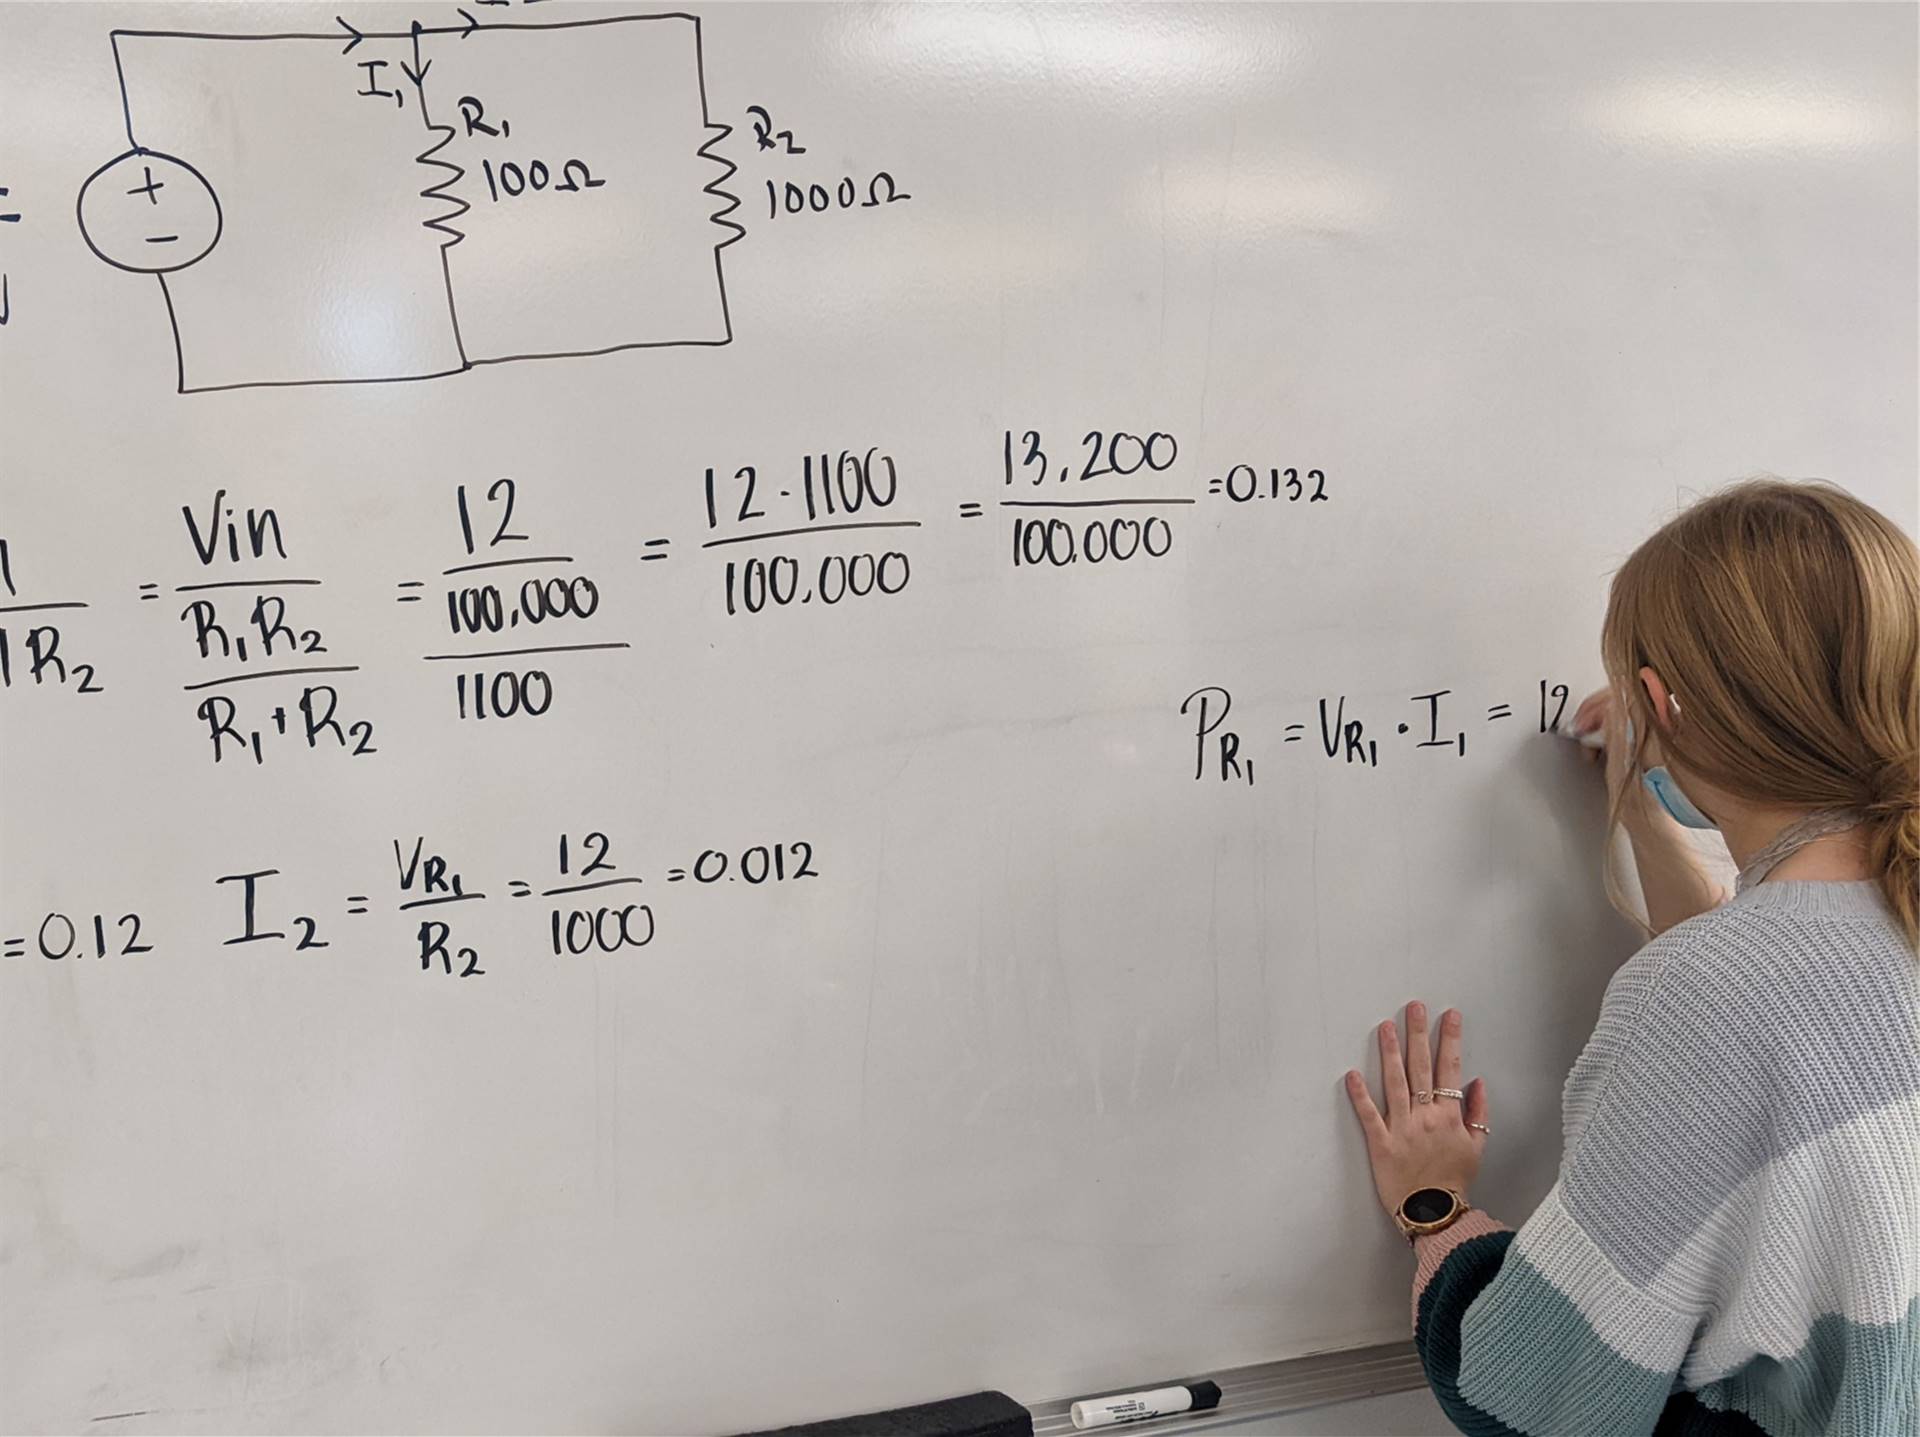 I₁
R₁
100Ω
R₂
1000Ω
+
−
R₂ = Vin / (R₁R₂ / (R₁+R₂)) = 12 / (100,000 / 1100) = 12·1100 / 100,000 = 13,200 / 100,000 = 0.132
P_R₁ = V_R₁ · I₁ = 12
= 0.12 I₂ = V_R₁ / R₂ = 12 / 1000 = 0.012